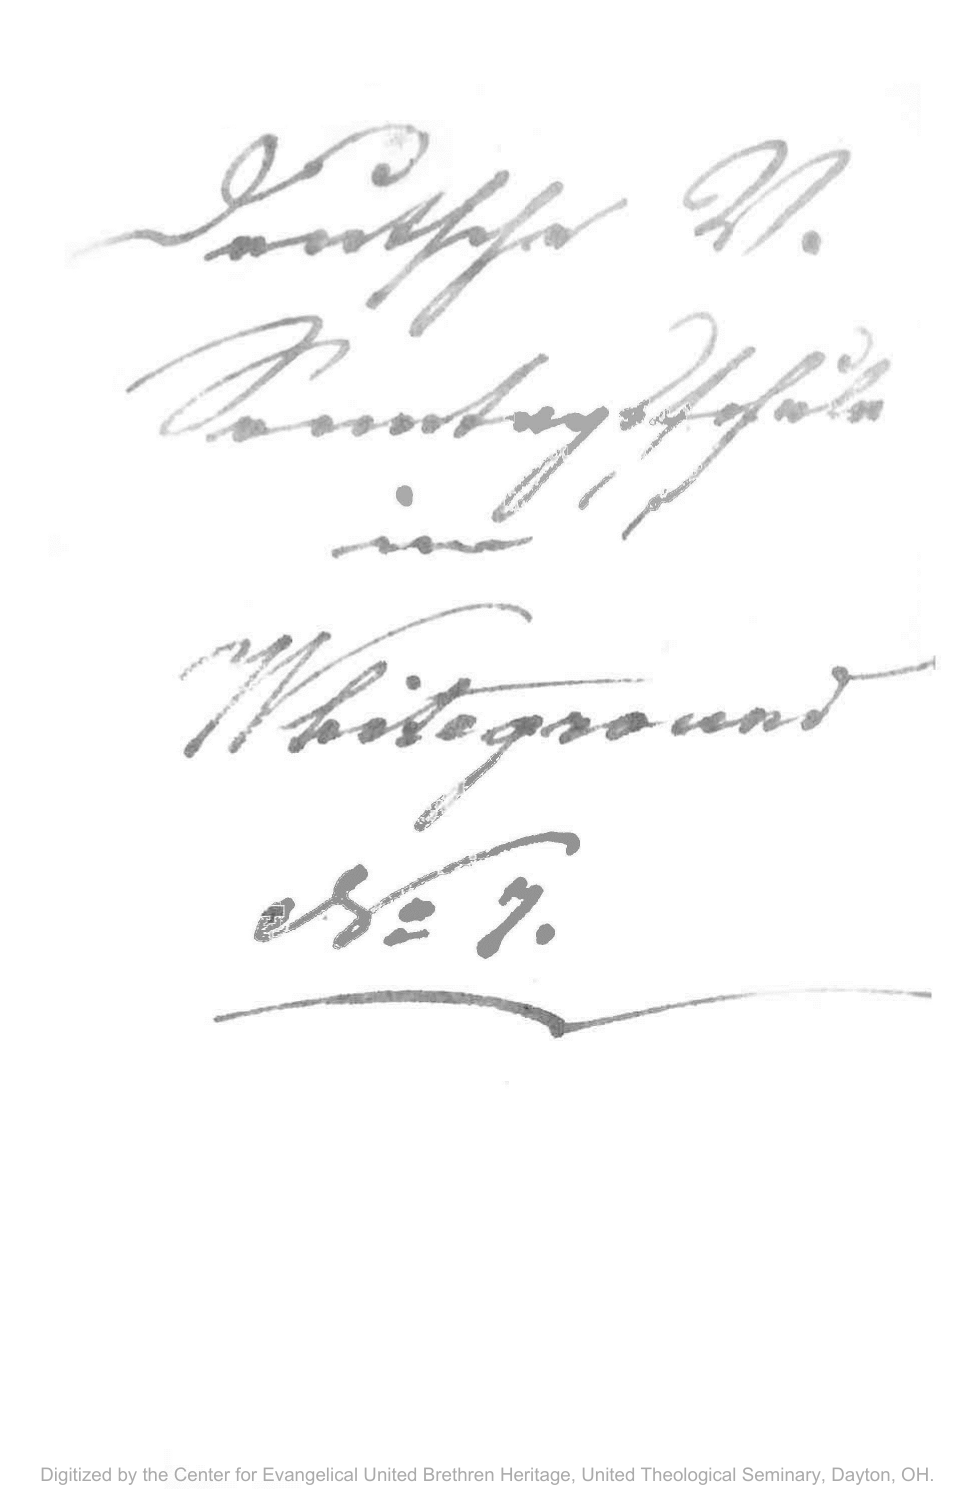 Deutsche V.
Sonntagsschule
in
Whiteground
No 7.
Digitized by the Center for Evangelical United Brethren Heritage, United Theological Seminary, Dayton, OH.